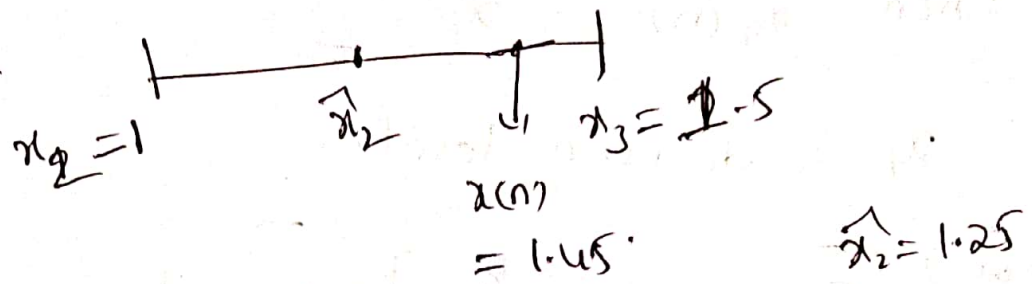 x₂ = 1
x̂₂
x₃ = 1.5
x(n)
= 1.45
x̂₂ = 1.25